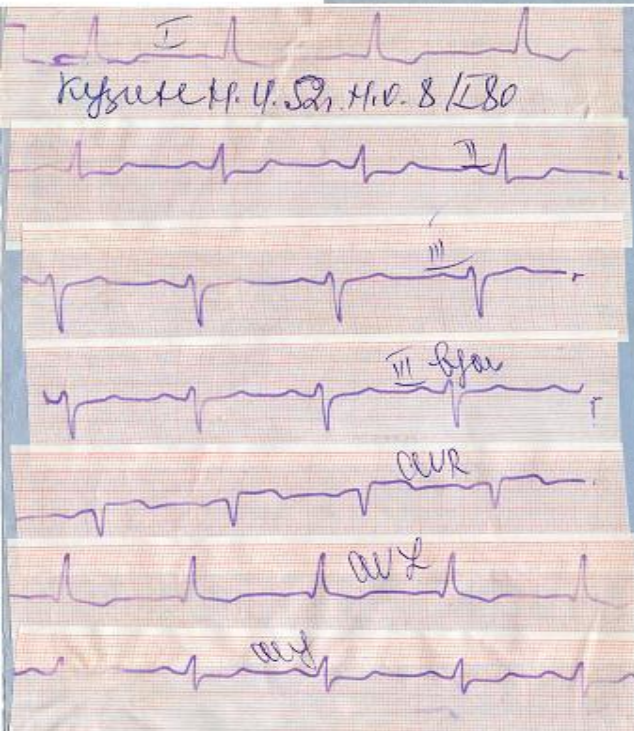 I
Кузин Н.И. 52г. И.О. 8/I 80
II
III
III вдох
aVR
aVL
aVF